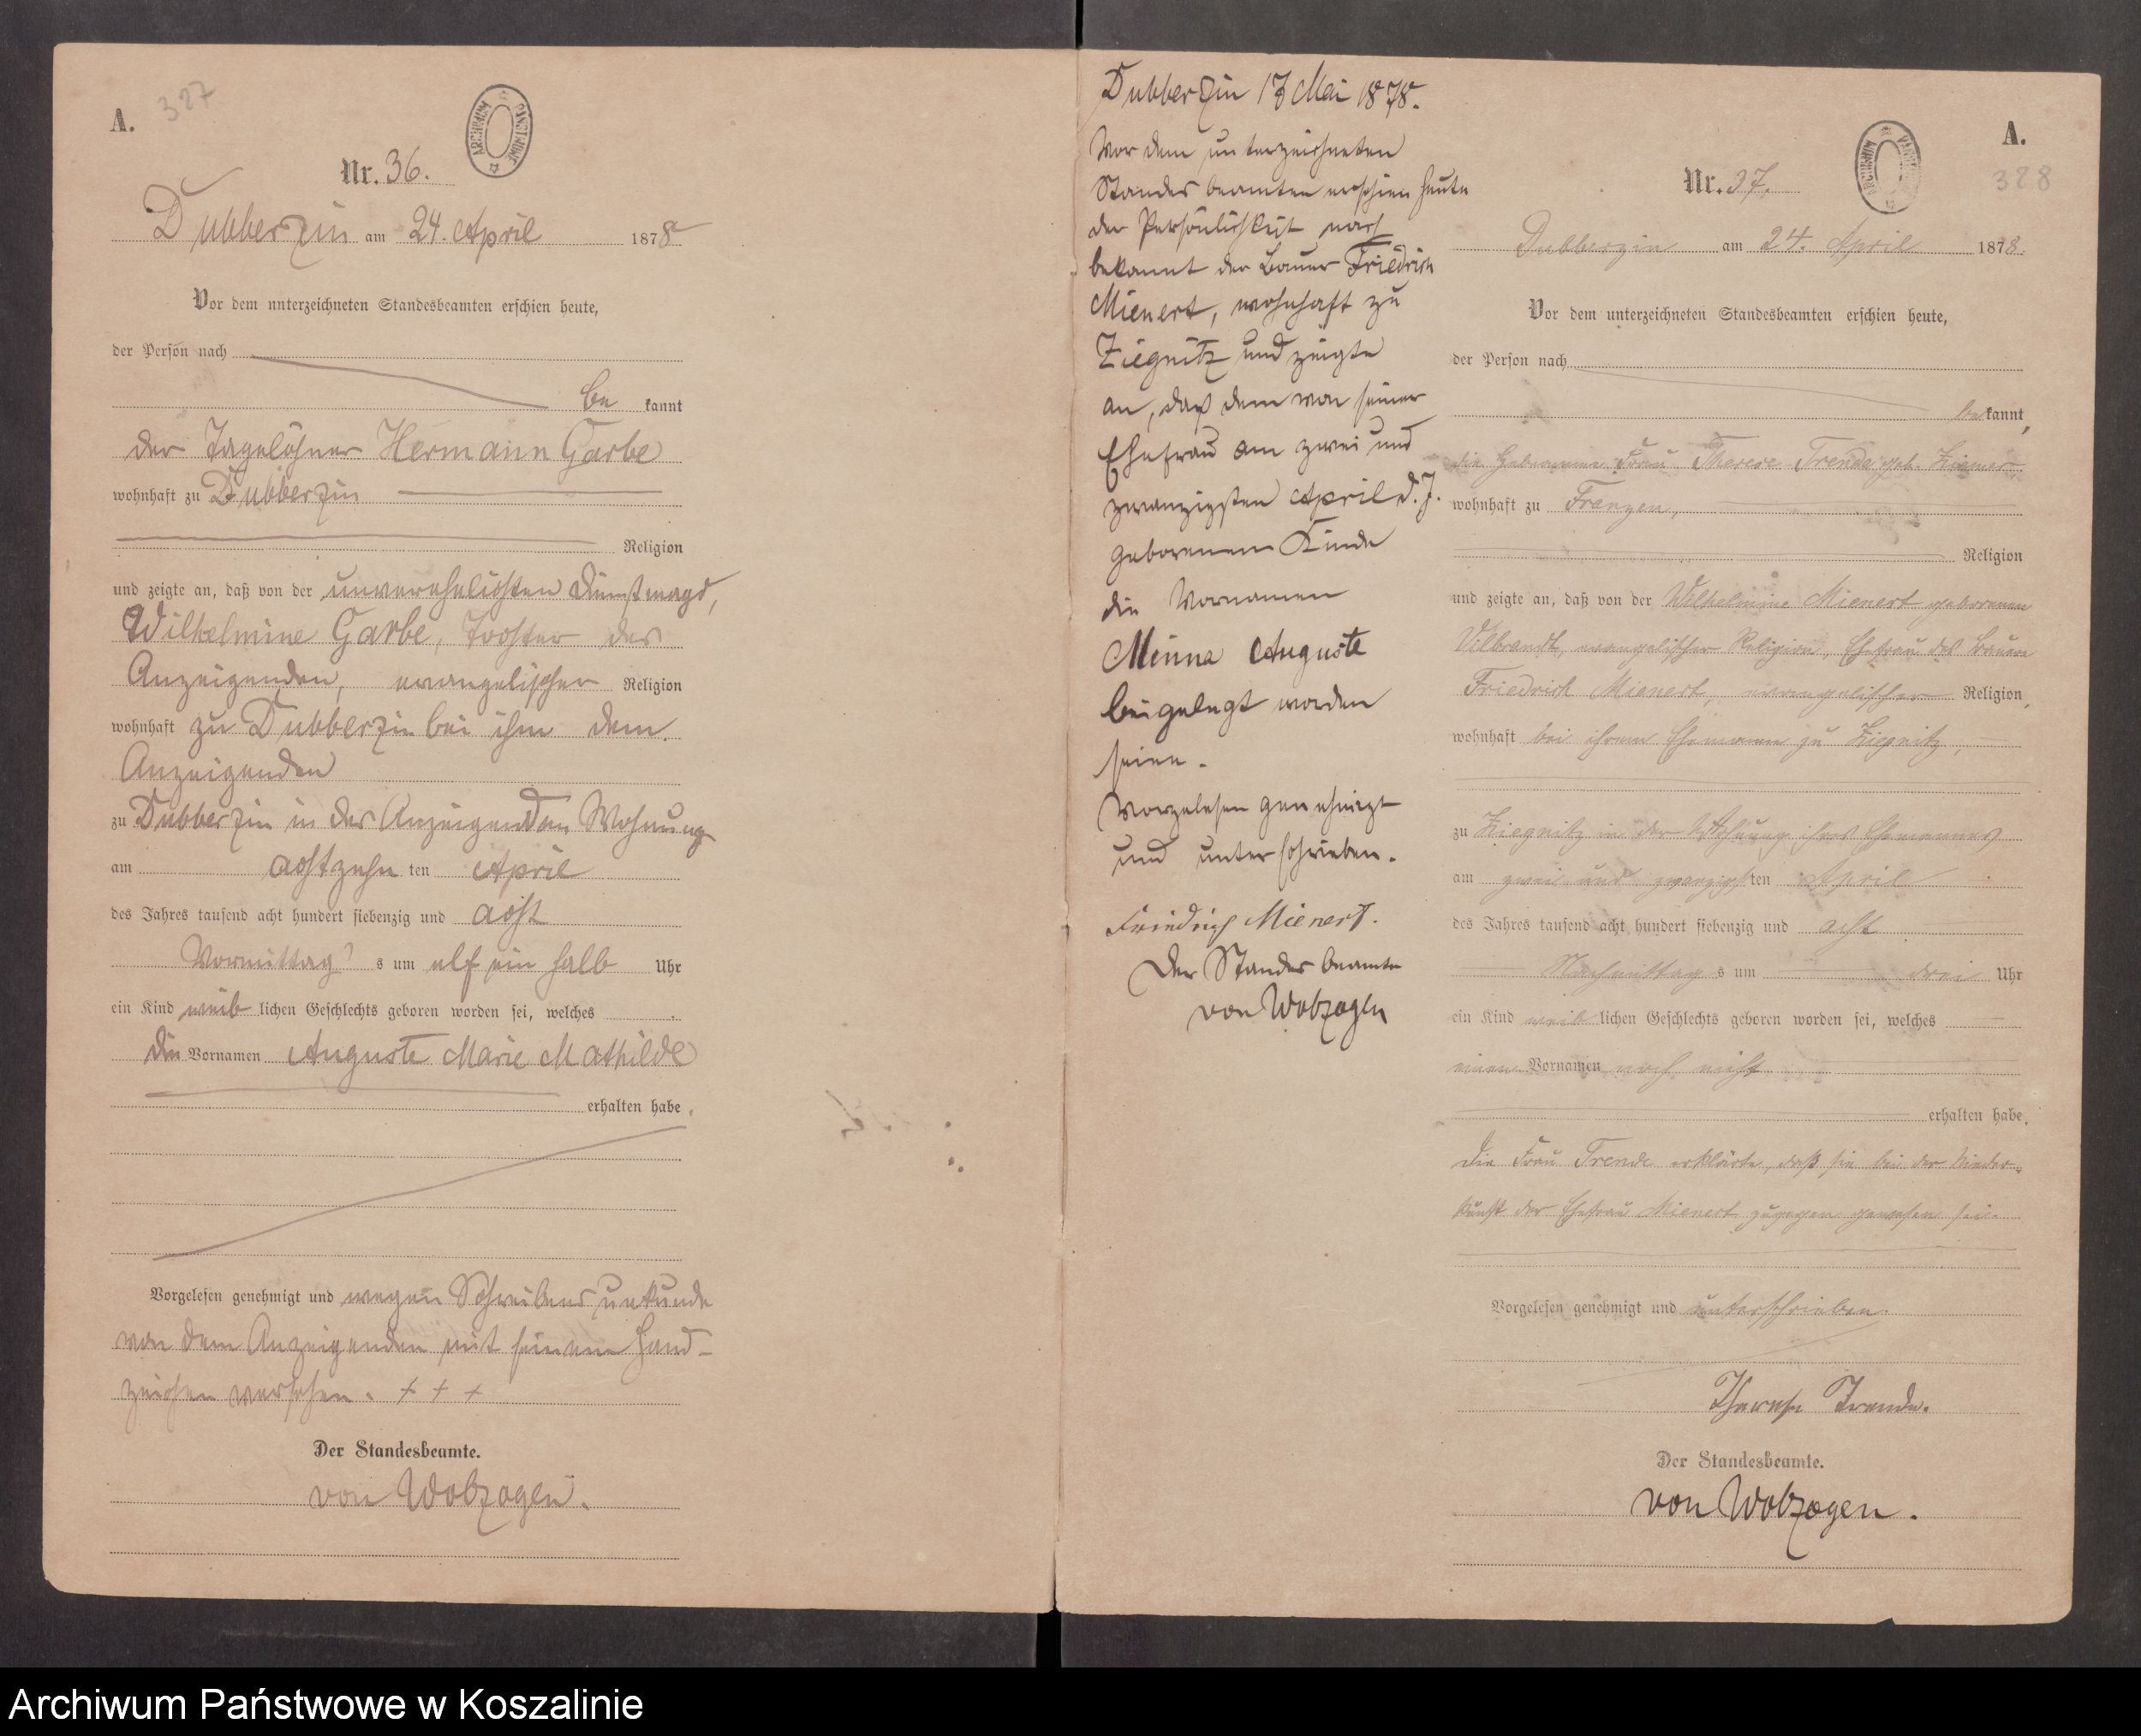 A. 327
ARCHIWUM PAŃSTWOWE
Nr. 36.
Dubberzin am 24. April 1878
Vor dem unterzeichneten Standesbeamten erschien heute,
der Person nach
be kannt
der Tagelöhner Hermann Garbe
wohnhaft zu Dubberzin
Religion
und zeigte an, daß von der unverehelichten Dienstmagd,
Wilhelmine Garbe, Tochter des
Anzeigenden, evangelischer Religion
wohnhaft zu Dubberzin bei ihm dem
Anzeigenden
zu Dubberzin in des Anzeigenden Wohnung
am achtzehn ten April
des Jahres tausend acht hundert siebenzig und acht
Vormittag s um elf ein halb Uhr
ein Kind weib lichen Geschlechts geboren worden sei, welches
die Vornamen Auguste Marie Mathilde
erhalten habe.
Vorgelesen genehmigt und wegen Schreibensunkunde
von dem Anzeigenden mit seinem Hand-
zeichen versehen. + + +
Der Standesbeamte.
von Wobzogen.
Dubberzin 17 Mai 1878.
Vor dem unterzeichneten
Standesbeamten erschien heute
der Persönlichkeit nach
bekannt der Bauer Friedrich
Mienert, wohnhaft zu
Ziegnitz und zeigte
an, daß dem von seiner
Ehefrau am zwei und
zwanzigsten April d. J.
geborenen Kinde
die Vornamen
Minna Auguste
beigelegt worden
seien.
Vorgelesen genehmigt
und unterschrieben.
Friedrich Mienert.
Der Standesbeamte
von Wobzogen
A.
328
ARCHIWUM PAŃSTWOWE
Nr. 37.
Dubberzin am 24. April 1878.
Vor dem unterzeichneten Standesbeamten erschien heute,
der Person nach
be kannt,
die Hebamme Frau Therese Trende geb. Ziemer
wohnhaft zu Franzen,
Religion
und zeigte an, daß von der Wilhelmine Mienert geborenen
Vilbrandt, evangelischer Religion, Ehefrau des Bauern
Friedrich Mienert, evangelischer Religion,
wohnhaft bei ihrem Ehemann zu Ziegnitz,
zu Ziegnitz in der Wohnung ihres Ehemannes
am zwei und zwanzigs ten April
des Jahres tausend acht hundert siebenzig und acht
Nachmittag s um drei Uhr
ein Kind weib lichen Geschlechts geboren worden sei, welches
einen Vornamen noch nicht
erhalten habe.
Die Frau Trende erklärte, daß sie bei der Nieder-
kunft der Ehefrau Mienert zugegen gewesen sei.
Vorgelesen genehmigt und unterschrieben.
Therese Trende.
Der Standesbeamte.
von Wobzogen.
Archiwum Państwowe w Koszalinie